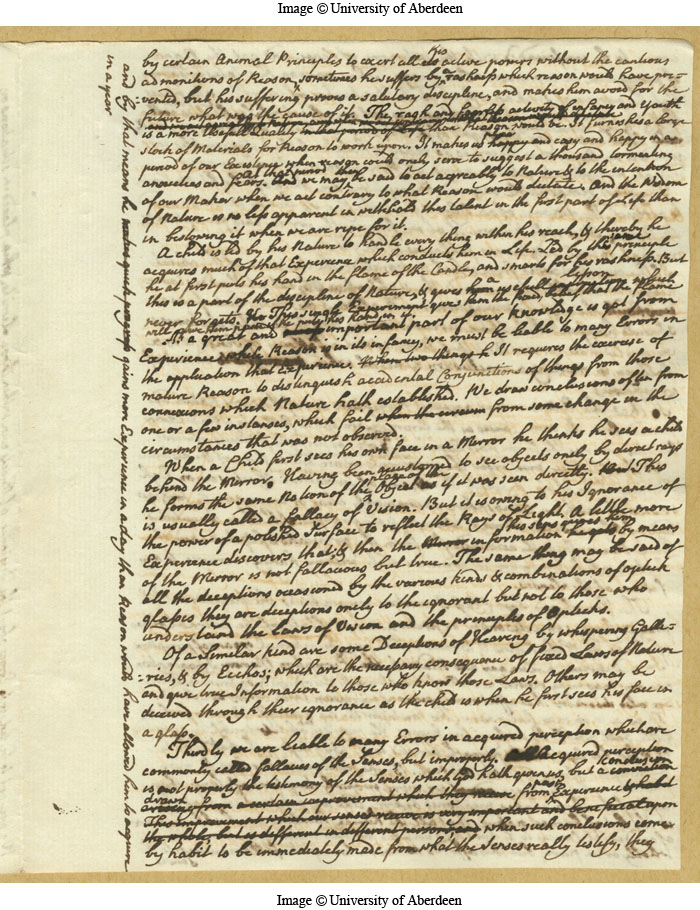 Image © University of Aberdeen
by certain Animal Principles to exert all his active powers without the cautious
admonitions of Reason, sometimes he suffers by rashness which reason would have pre-
vented, but his suffering proves a salutary discipline, and makes him avoid for the
future what was the cause of it. The rash and activity of infancy and youth
is a more usefull Quality in that period of Life than Reason would be. It furnishes a large
stock of Materials for Reason to work upon. It makes us happy and easy and happy in a
period of our Existence when reason could onely serve to suggest a thousand tormenting
anxieties and fears. At that period we may be said to act agreably to Nature & to the intention
of our Maker when we act contrary to what Reason would dictate. And the Wisdom
of Nature is no less apparent in withhold this talent in the first part of Life than
in bestowing it when we are ripe for it.
A child is led by his Nature to handle every thing within his reach, & thereby he
acquires much of that Experience which conducts him in Life. Led by the same principle
he at first puts his hand in the flame of the Candle, and smarts for his rashness. But
this is a part of the discipline of Nature, & gives him a usefull lesson which
never forgets. This single Experiment gives him the that the flame
will give him pain if he puts his hand in it.
As a great and important part of our knowledge is got from
Experience while Reason is in its infancy, we must be liable to many Errors in
the application that Experience. When two things h It requires the exercise of
mature Reason to distinguish accidental Conjunctions of things from those
connexions which Nature hath established. We draw conclusions often from
one or a few instances, which fail when the circum from some change in the
circumstances that was not observed.
When a Child first sees his own face in a Mirror he thinks he sees a child
behind the Mirror. Having been accustomed to see objects onely by direct rays
he forms the same Notion of the place of the Object as if it was seen directly. This
is usually called a fallacy of Vision. But it is owing to his Ignorance of
the power of a polished Surface to reflect the Rays of Light. A little more
Experience discovers that; & then the Mirror information this gives him by means
of the Mirror is not fallacious but true. The same thing may be said of
all the deceptions occasioned by the various kinds & combinations of optick
glasses they are deceptions onely to the ignorant but not to those who
understand the laws of Vision and the principles of Opticks.
Of a Similar kind are some Deceptions of Hearing by whispering Galle-
ries, & by Ecchos; which are the necessary consequence of fixed Laws of Nature
and give true Information to those who know those Laws. Others may be
deceived through their ignorance as the child is when he first sees his face in
a glass.
Thirdly we are liable to many Errors in acquired perception which are
commonly called fallacies of the Senses, but improperly. Acquired perception
is not properly the testimony of the Senses which God hath given us, but a conclusion
drawn from a certain improvement which they receive from Experience & habit
This improvement which our senses receive is very important and beneficial upon
the whole, but is different in different persons and when such conclusions come
by habit to be immediately made from what the Senses really testify, they
and by that means he gains more Experience in a day than Reason would have allowed him to acquire
in a year
Image © University of Aberdeen